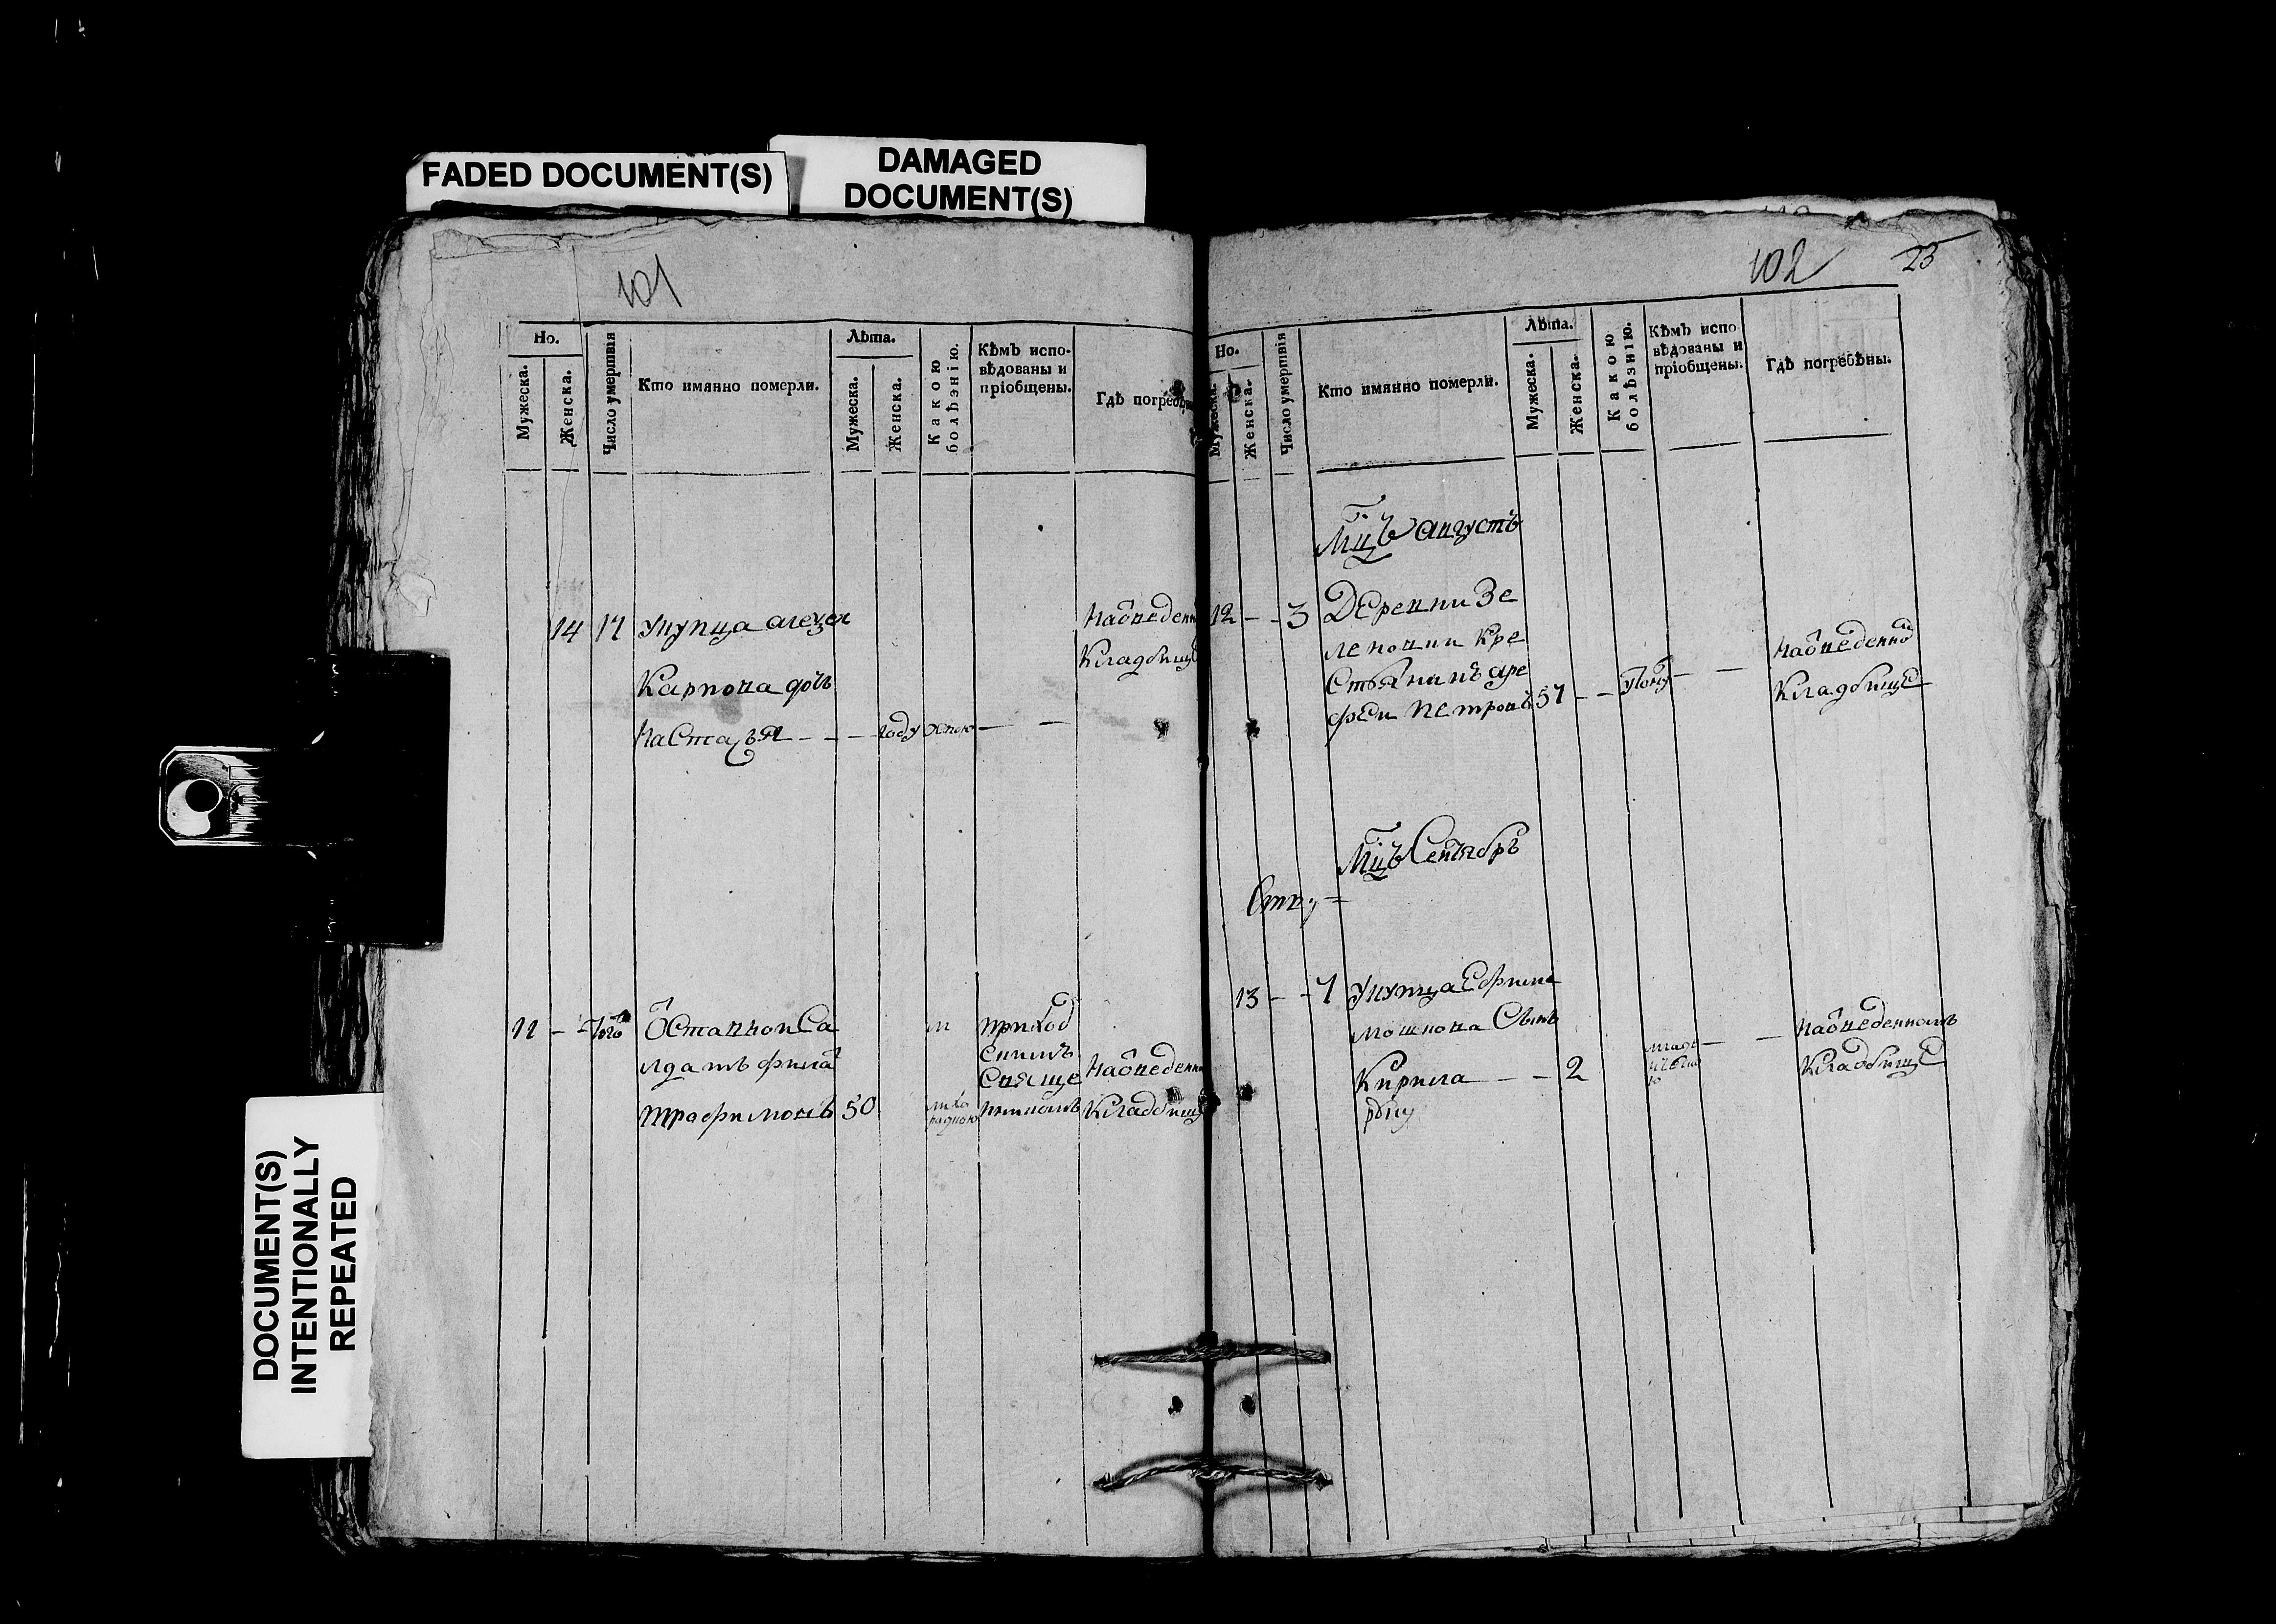 FADED DOCUMENT(S)
DAMAGED
DOCUMENT(S)
DOCUMENT(S)
INTENTIONALLY
REPEATED
101
Но.
Мужеска.
Женска.
Число умертвія
Кто имянно померли.
Лѣта.
Мужеска.
Женска.
Какою
болѣзнію.
Кѣмъ испо-
вѣдованы и
пріобщены.
Гдѣ погребены
14 17 Укупца алеѯея
Карпова дочь
Настасья — — — году оспою — —
На ѿведенно
Кладбище
11 — —
Ѿставнои Са
лдатъ фила
трафимовъ 50
лихо
радкою
приход
скимъ
Свяще
никомъ
На ѿведенно
Кладбище
102
23
Но.
Мужеска.
Женска.
Число умертвія
Кто имянно померли.
Лѣта.
Мужеска.
Женска.
Какою
болѣзнію.
Кѣмъ испо
вѣдованы и
пріобщены.
Гдѣ погребѣны.
Мцъ августъ
12 — — 3 Деревни Зе
леновки Кре
Стьянинъ аре
феи Петровъ 57 — — — —
На ѿведенно
Кладбище
Мцъ Сентябрь
13 — — 7 Укупца Ефима
мошкова Сынъ
Кирила — — 2
— —
На ѿведенномъ
Кладбище